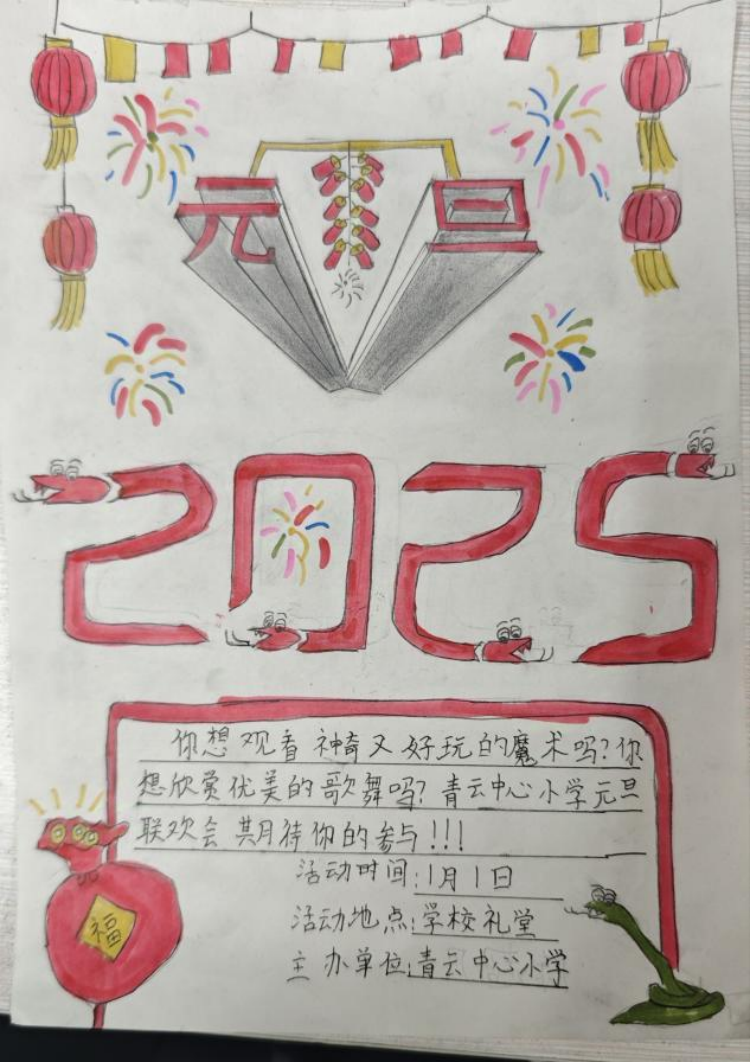 元旦
2025
你想观看神奇又好玩的魔术吗?你
想欣赏优美的歌舞吗?青云中心小学元旦
联欢会期待你的参与!!!
活动时间:1月1日
活动地点:学校礼堂
主办单位:青云中心小学
福